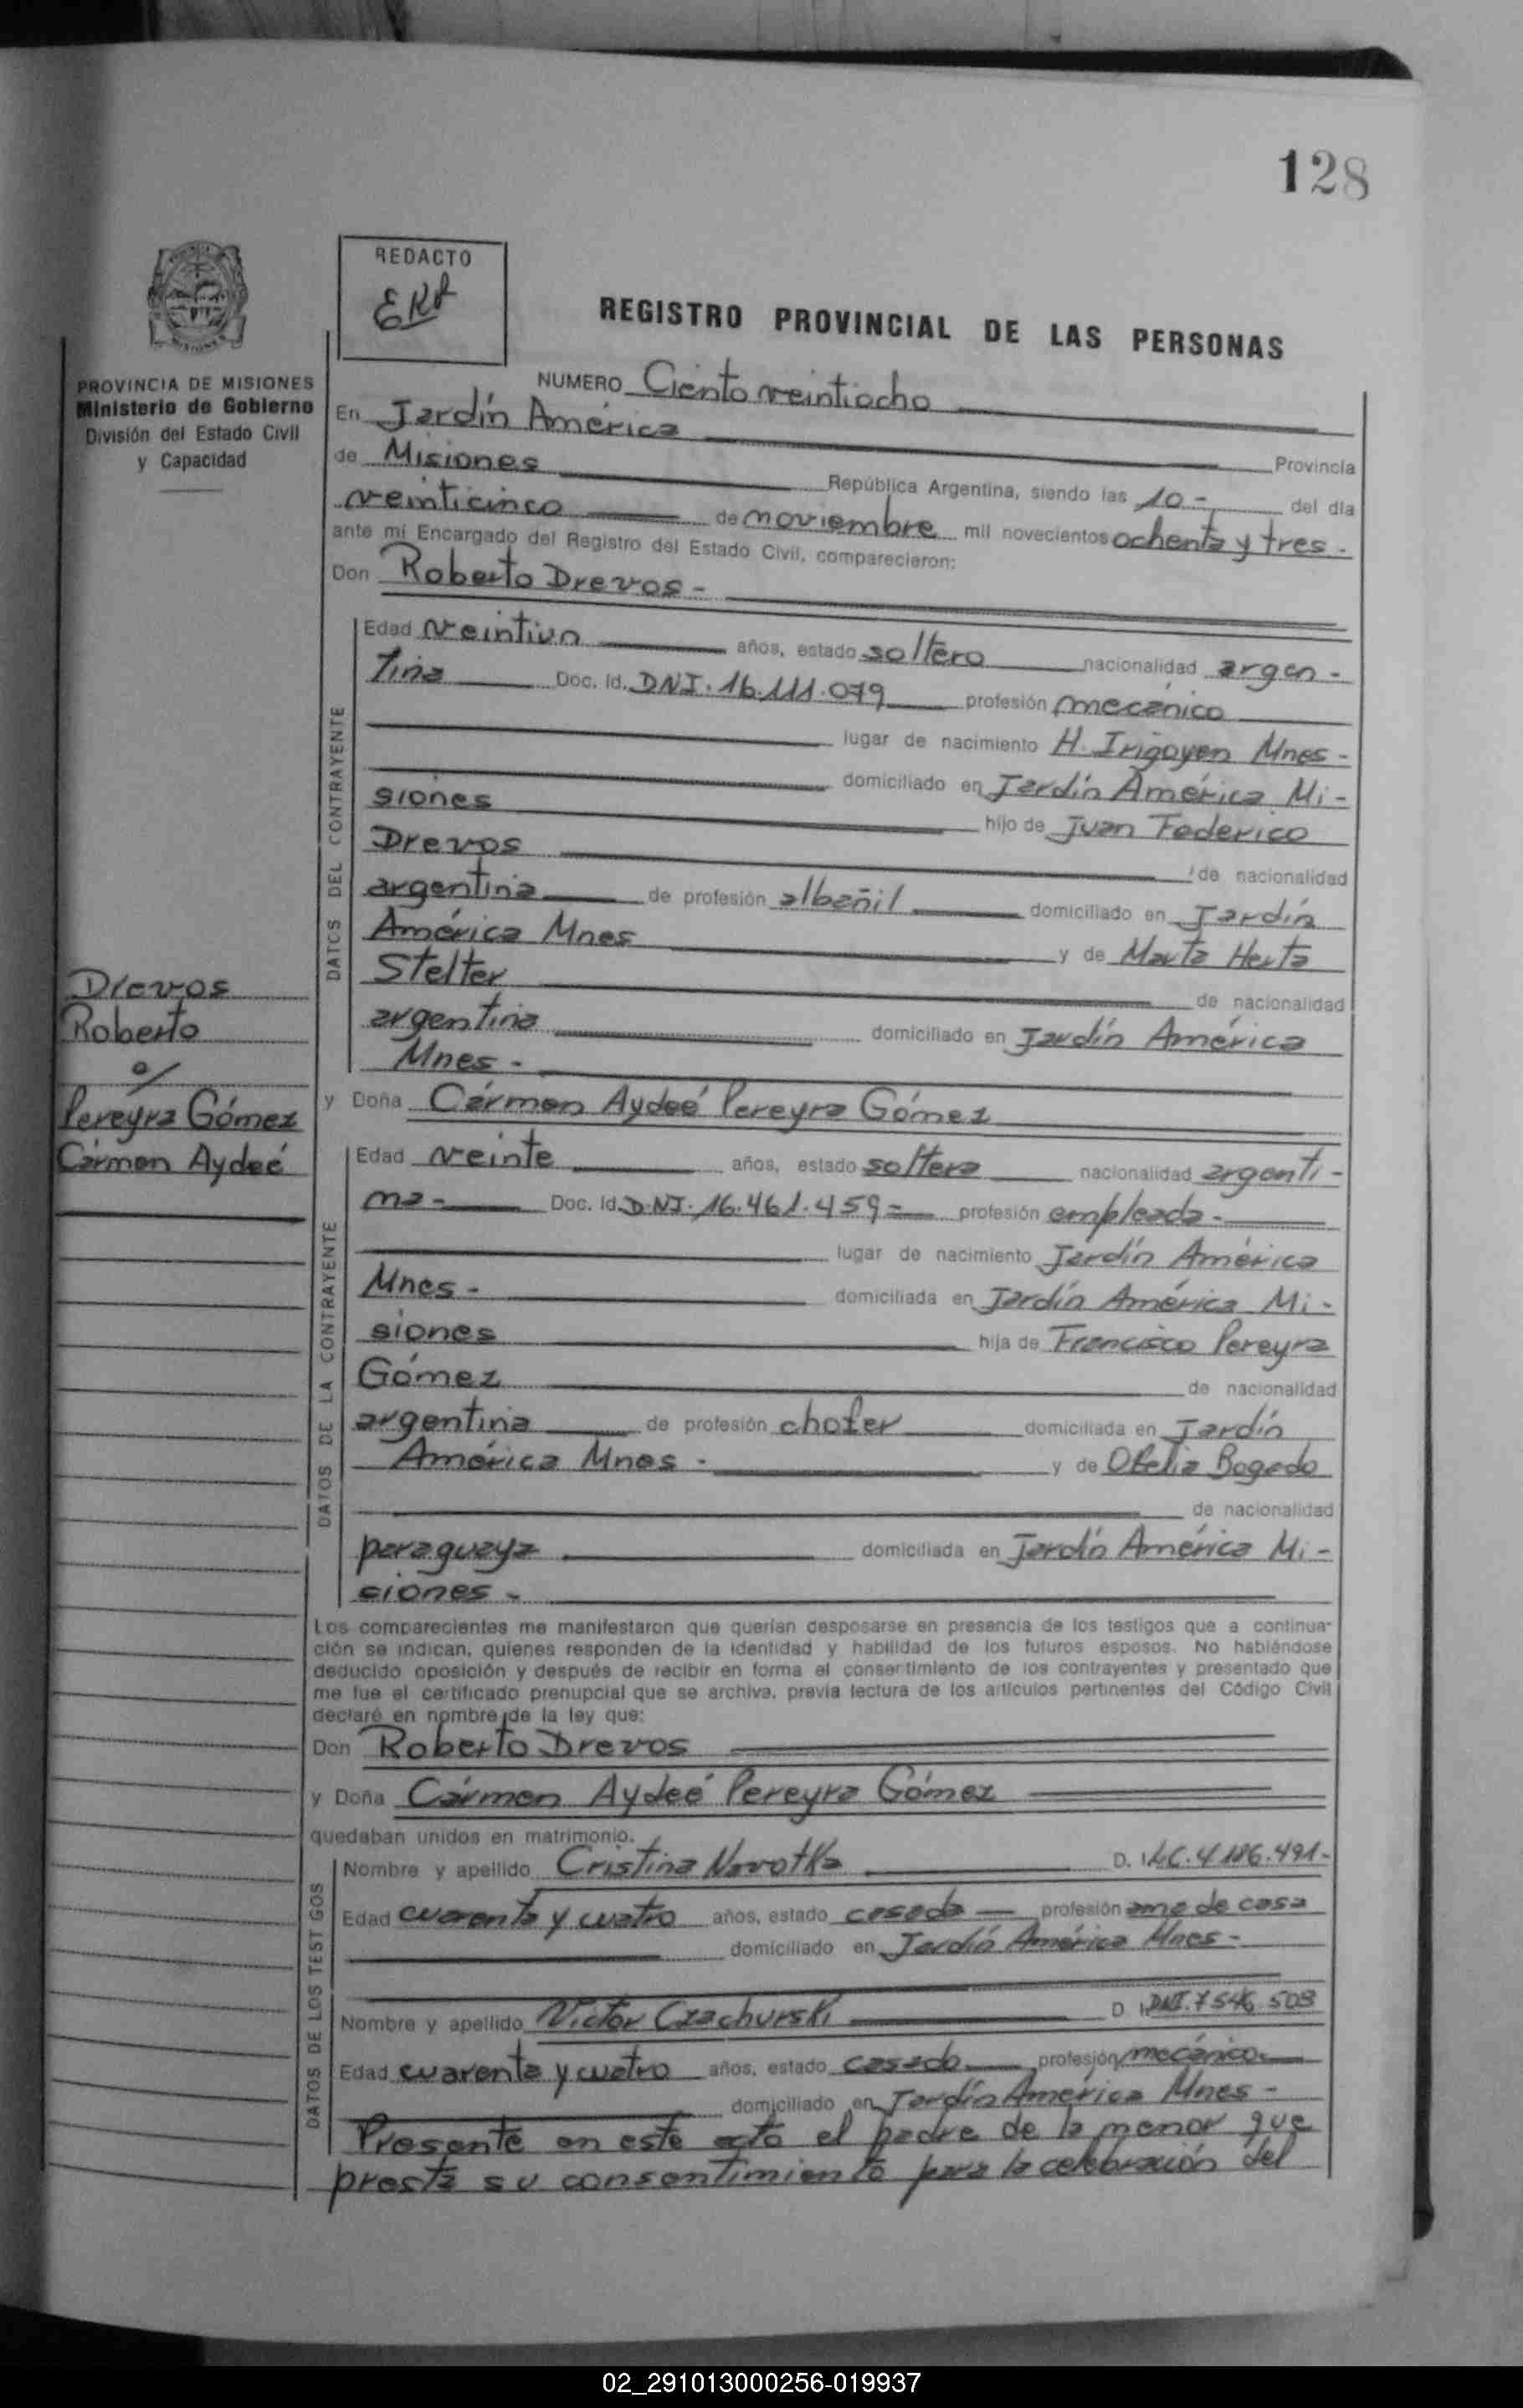 128
REDACTO
REGISTRO PROVINCIAL DE LAS PERSONAS
PROVINCIA DE MISIONES
Ministerio de Gobierno
División del Estado Civil
y Capacidad
NUMERO Ciento veintiocho
En Jardín América
Provincia
de Misiones República Argentina, siendo las 10- del día
veinticinco de noviembre mil novecientos ochenta y tres.
ante mí Encargado del Registro del Estado Civil, comparecieron:
Don Roberto Drevos -
DATOS DEL CONTRAYENTE
Edad veintiun años, estado soltero nacionalidad argen-
tina Doc. Id. DNI. 16.111.079 profesión mecánico
lugar de nacimiento H. Irigoyen Mnes-
domiciliado en Jardín América Mi-
siones hijo de Juan Federico
Drevos de nacionalidad
argentina de profesión albañil domiciliado en Jardín
América Mnes y de Marta Herta
Stelter de nacionalidad
argentina domiciliado en Jardín América
Mnes -
Drevos
Roberto
Pereyra Gómez
Cármen Aydeé
y Doña Cármen Aydeé Pereyra Gómez
DATOS DE LA CONTRAYENTE
Edad veinte años, estado soltera nacionalidad argenti-
na- Doc. Id. D.NI. 16.461.459= profesión empleada-
lugar de nacimiento Jardín América
Mnes- domiciliada en Jardín América Mi-
siones hija de Francisco Pereyra
Gómez de nacionalidad
argentina de profesión chofer domiciliada en Jardín
América Mnes- y de Ofelia Bogado
de nacionalidad
paraguaya domiciliada en Jardín América Mi-
siones-
Los comparecientes me manifestaron que querían desposarse en presencia de los testigos que a continua-
ción se indican, quienes responden de la identidad y habilidad de los futuros esposos. No habiéndose
deducido oposición y después de recibir en forma el consertimiento de los contrayentes y presentado que
me fue el certificado prenupcial que se archiva, previa lectura de los artículos pertinentes del Código Civil
declaré en nombre de la ley que:
Don Roberto Drevos
y Doña Cármen Aydeé Pereyra Gómez
quedaban unidos en matrimonio.
DATOS DE LOS TEST GOS
Nombre y apellido Cristina Novotka D. I LC. 4186.491-
Edad cuarenta y cuatro años, estado casada profesión ama de casa
domiciliado en Jardín América Mnes-
Nombre y apellido Victor Czachurski D. I DNI. 7546.503
Edad cuarenta y cuatro años, estado casado profesión mecánico
domiciliado en Jardín América Mnes-
Presente en este acto el padre de la menor que
presta su consentimiento para la celebración del
02_291013000256-019937